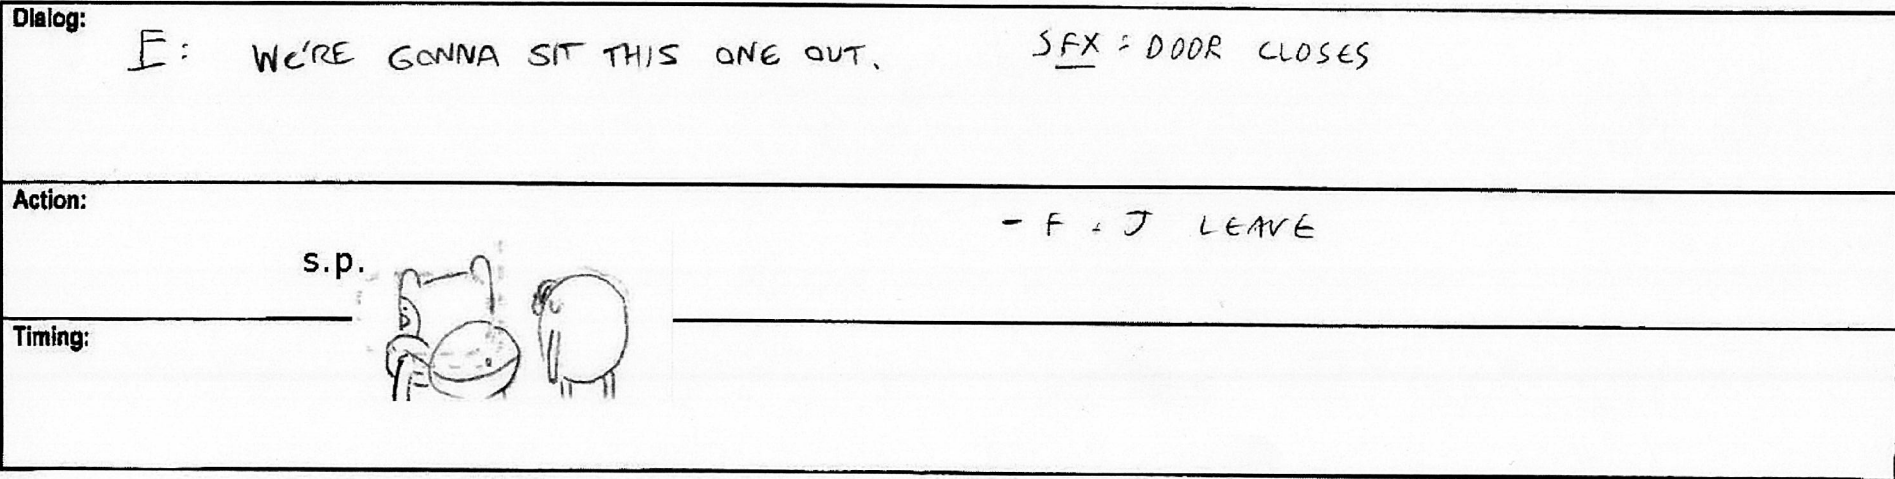 Dialog:
F: WE'RE GONNA SIT THIS ONE OUT.
SFX: DOOR CLOSES
Action:
- F + J LEAVE
s.p.
Timing: